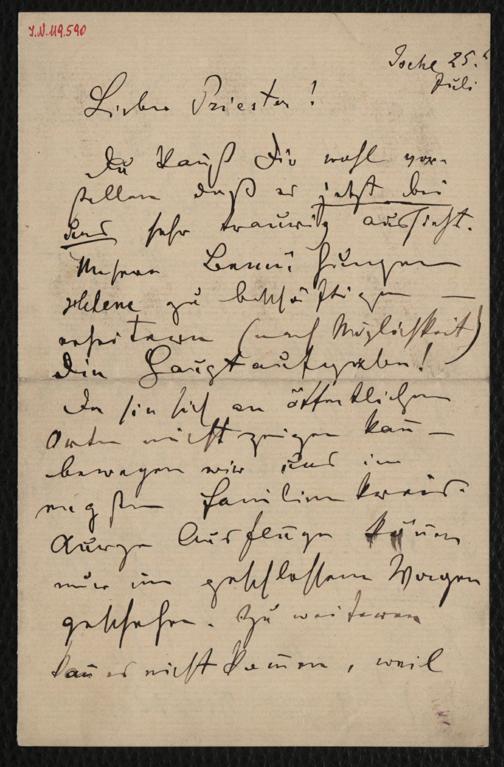 I.N. 119.590
Ischl 25.t
Juli
Lieber Priester!
Du kanst Dir wohl vor-
stellen daß es jetzt bei
uns sehr traurig aussieht.
Unsere Bemühungen
Helene zu beschäftigen —
erheitern (nach Möglichkeit)
die Hauptaufgaben!
Da sie sich an öffentlichen
Orten nicht zeigen kan̄ —
bewegen wir uns im
engsten Familienkreis.
Kurze Ausfluge kön̄en
nur im geschlossenen Wagen
geschehen. Zu weiteren
kan̄ es nicht kom̄en, weil